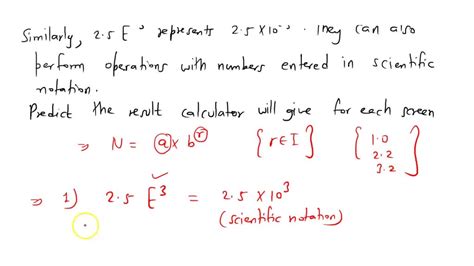 Similarly, 2.5 E⁻³ represents 2.5 × 10⁻³. They can also
perform operations with numbers entered in scientific
notation.
Predict the result calculator will give for each screen
⇒ N = a × b^r { r ∈ I } { 1.0
2.2
3.2 }
⇒ 1) 2.5 E³ = 2.5 × 10³
(scientific notation)